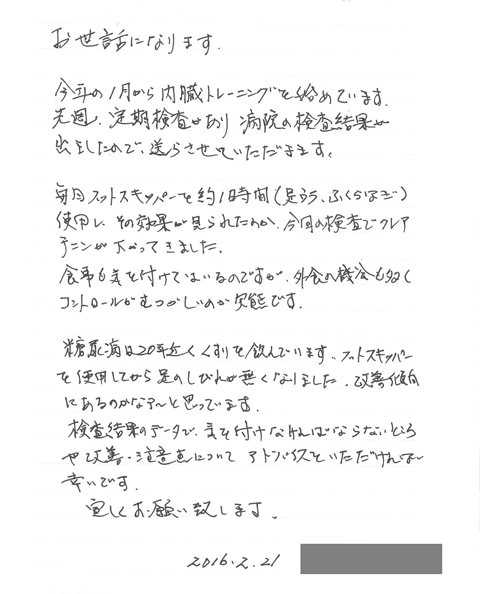 お世話になります.
今年の1月から内臓トレーニングを始めています.
先週、定期検査があり病院の検査結果が
出ましたので、送らさせていただきます。
毎日フットスキッパーを約1時間(足うら、ふくらはぎ)
使用し、その効果が見られたのか、今回の検査でクレア
チニンが下がってきました.
食事も気を付けてはいるのですが、外食の機会も多く
コントロールがむつかしいのが実態です.
糖尿病は20年近くくすりを飲んでいます.フットスキッパー
を使用してから足のしびれが無くなりました.改善傾向
にあるのかなア〜と思っています.
検査結果のデータで、気を付けなければならないところ
や改善・注意点について アドバイスをいただければ
幸いです.
宜しくお願い致します.
2016.2.21